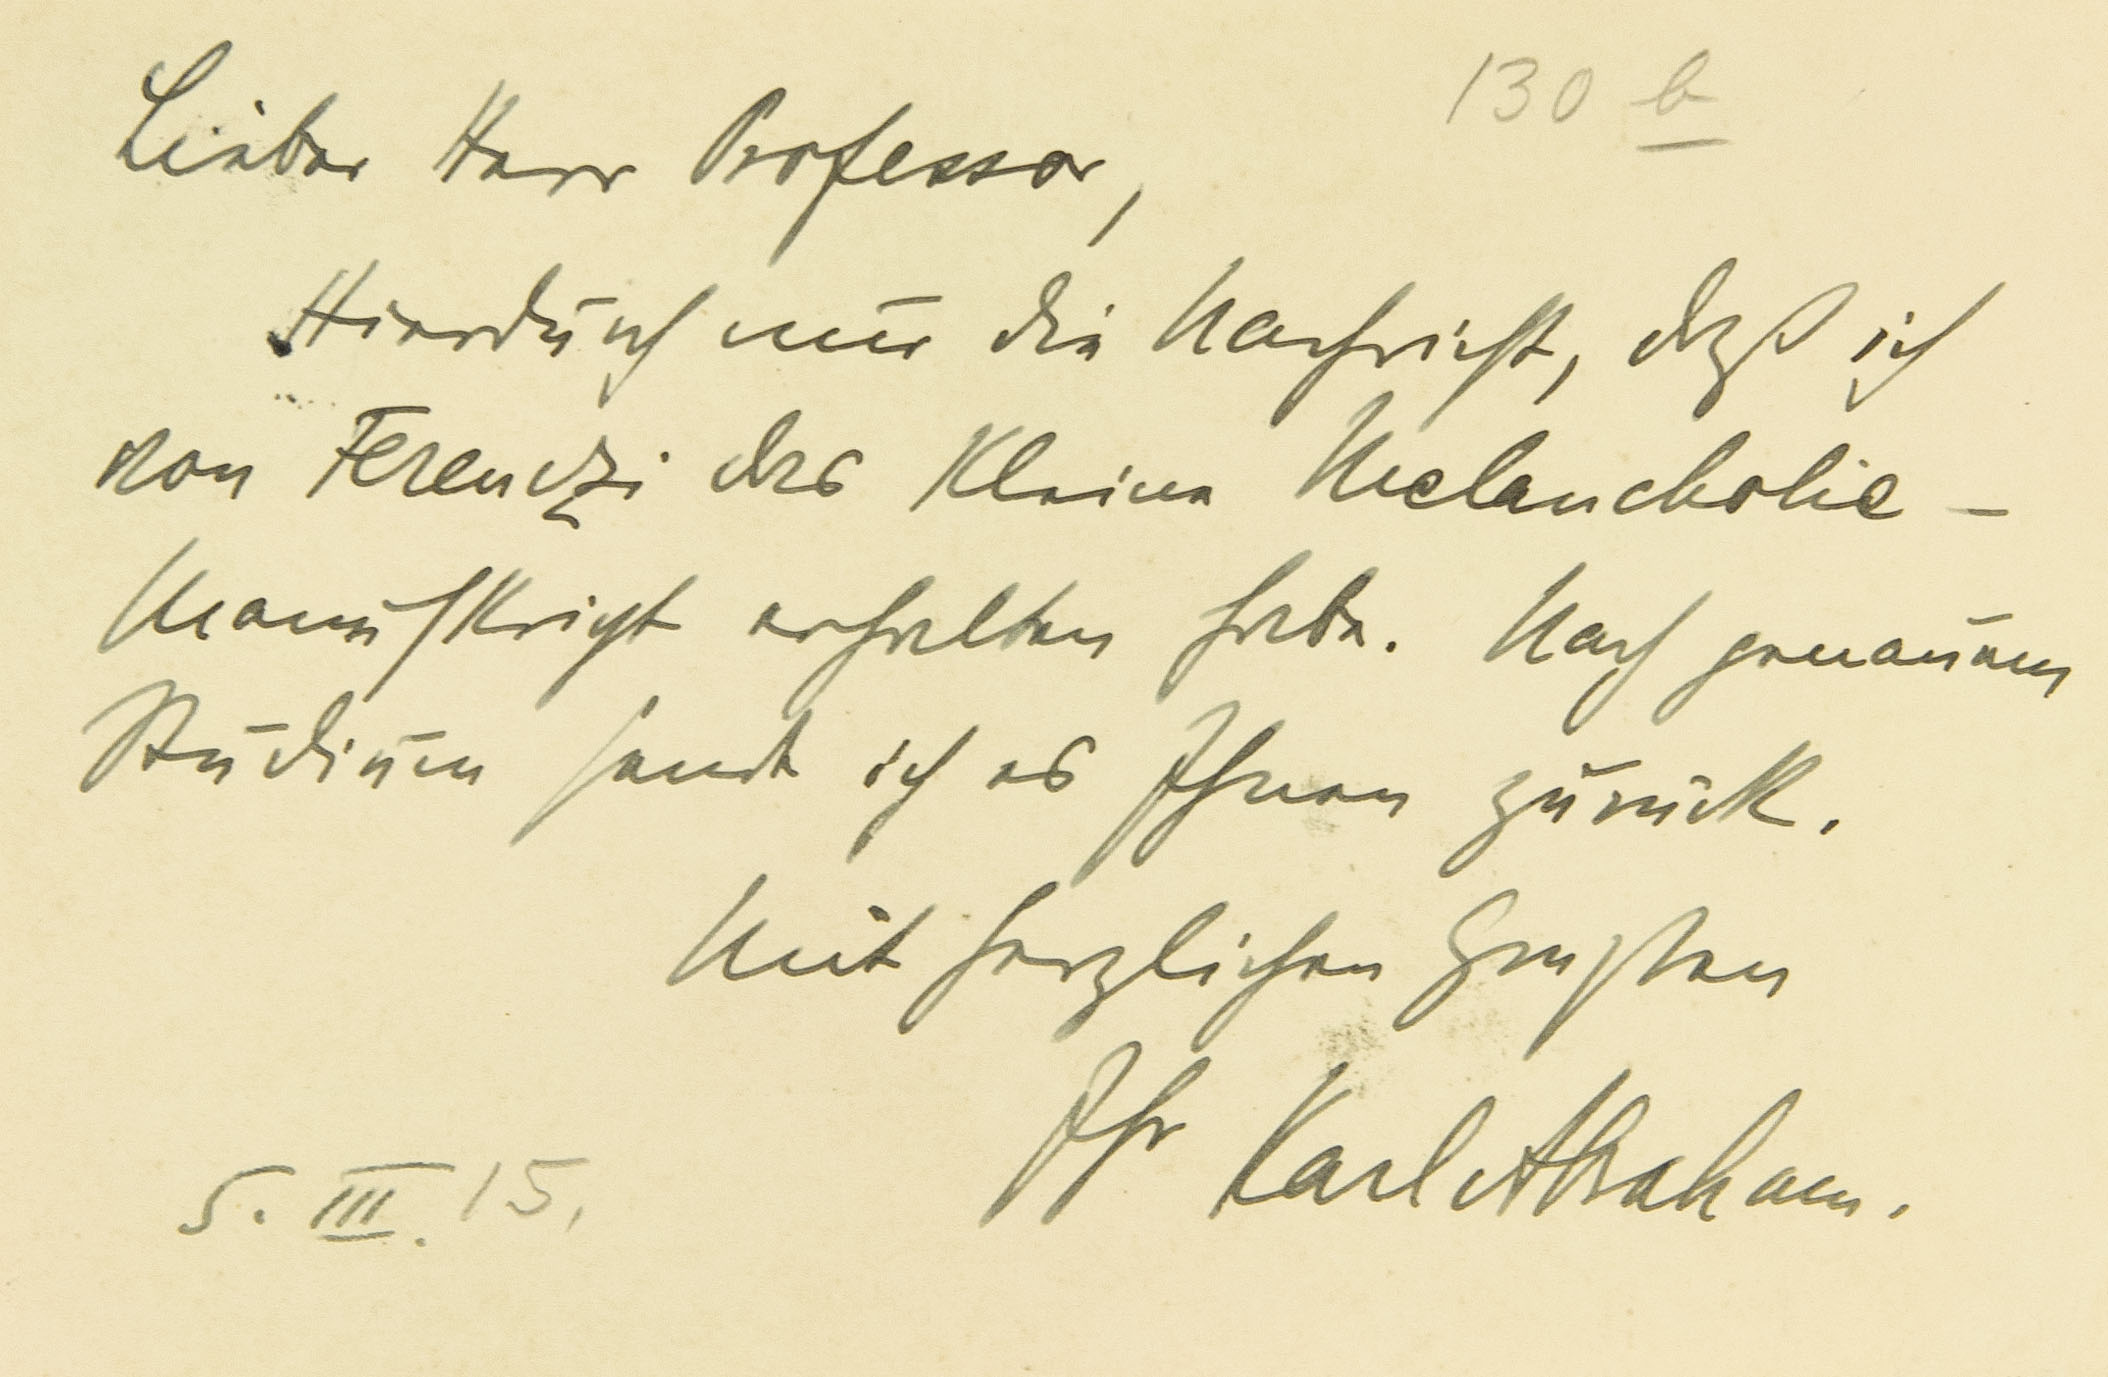 130 b
Lieber Herr Professor,
Hierdurch nur die Nachricht, daß ich
von Ferenczi das kleine Melancholie-
Manuskript erhalten habe. Nach genauem
Studium sende ich es Ihnen zurück.
Mit herzlichen Grüßen
Ihr Karl Abraham.
5. III. 15.